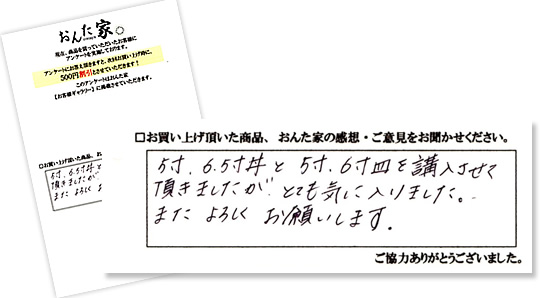 おんた家。
現在、商品を買っていただいたお客様に
アンケートを実施しております。
アンケートにお答え頂きますと、次回お買い上げ時に、
500円割引とさせていただきます！
このアンケートはおんた家
【お客様ギャラリー】に掲載させていただきます。
□お買い上げ頂いた商品、お
5寸、6.5寸丼と
頂きましたが
また よろしく お
□お買い上げ頂いた商品、おんた家の感想・ご意見をお聞かせください。
5寸、6.5寸丼と 5寸、6寸皿を購入させて
頂きましたが とても気に入りました。
また よろしく お願いします。
ご協力ありがとうございました。